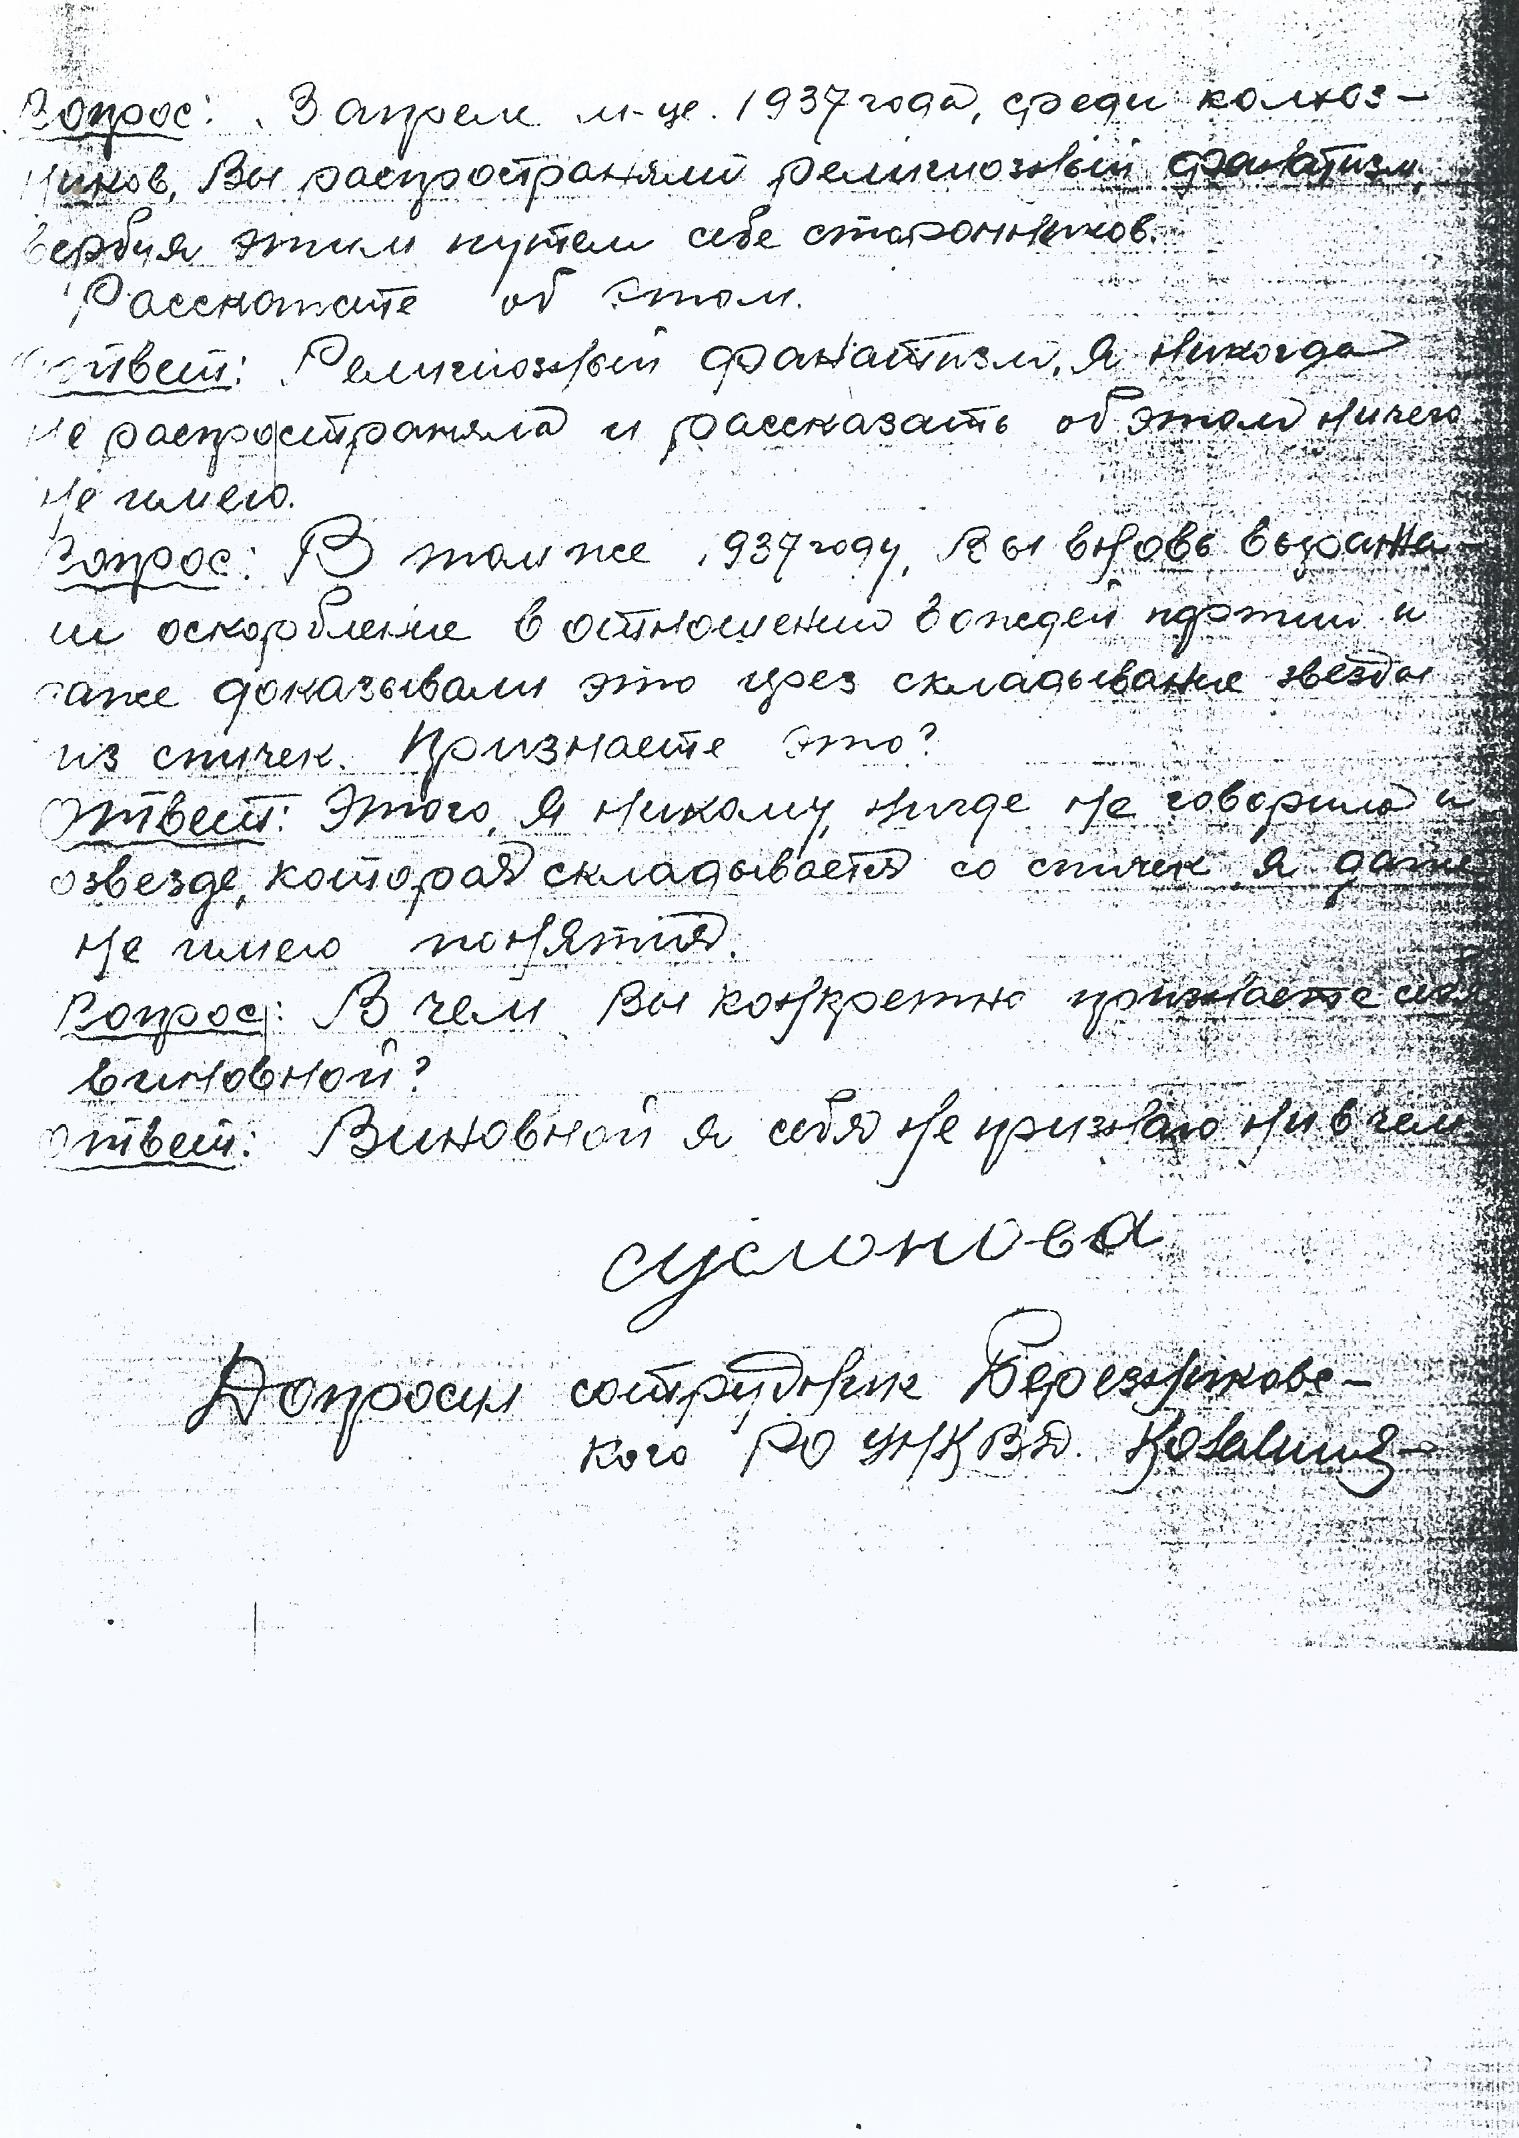 Вопрос: В апреле м-це. 1937 года, среди колхоз-
ников, Вы распространяли религиозный фанатизм,
вербуя этим путем себе сторонников.
Расскажите об этом.
Ответ: Религиозный фанатизм, я никогда
не распространяла и рассказать об этом ничего
не имею.
Вопрос: В том же 1937 году, Вы вновь выража-
ли оскорбление в отношении вождей партии и
даже доказывали это през складывание звезды
из спичек. Признаете это?
Ответ: Этого, я никому, нигде не говорила и
о звезде, которая складывается со спичек, я даже
не имею понятия.
Вопрос: В чем Вы конкретно признаете себя
виновной?
Ответ: Виновной я себя не признаю ни в чем.
суслонова
Допросил сотрудник Березниковс-
кого РО УНКВД.